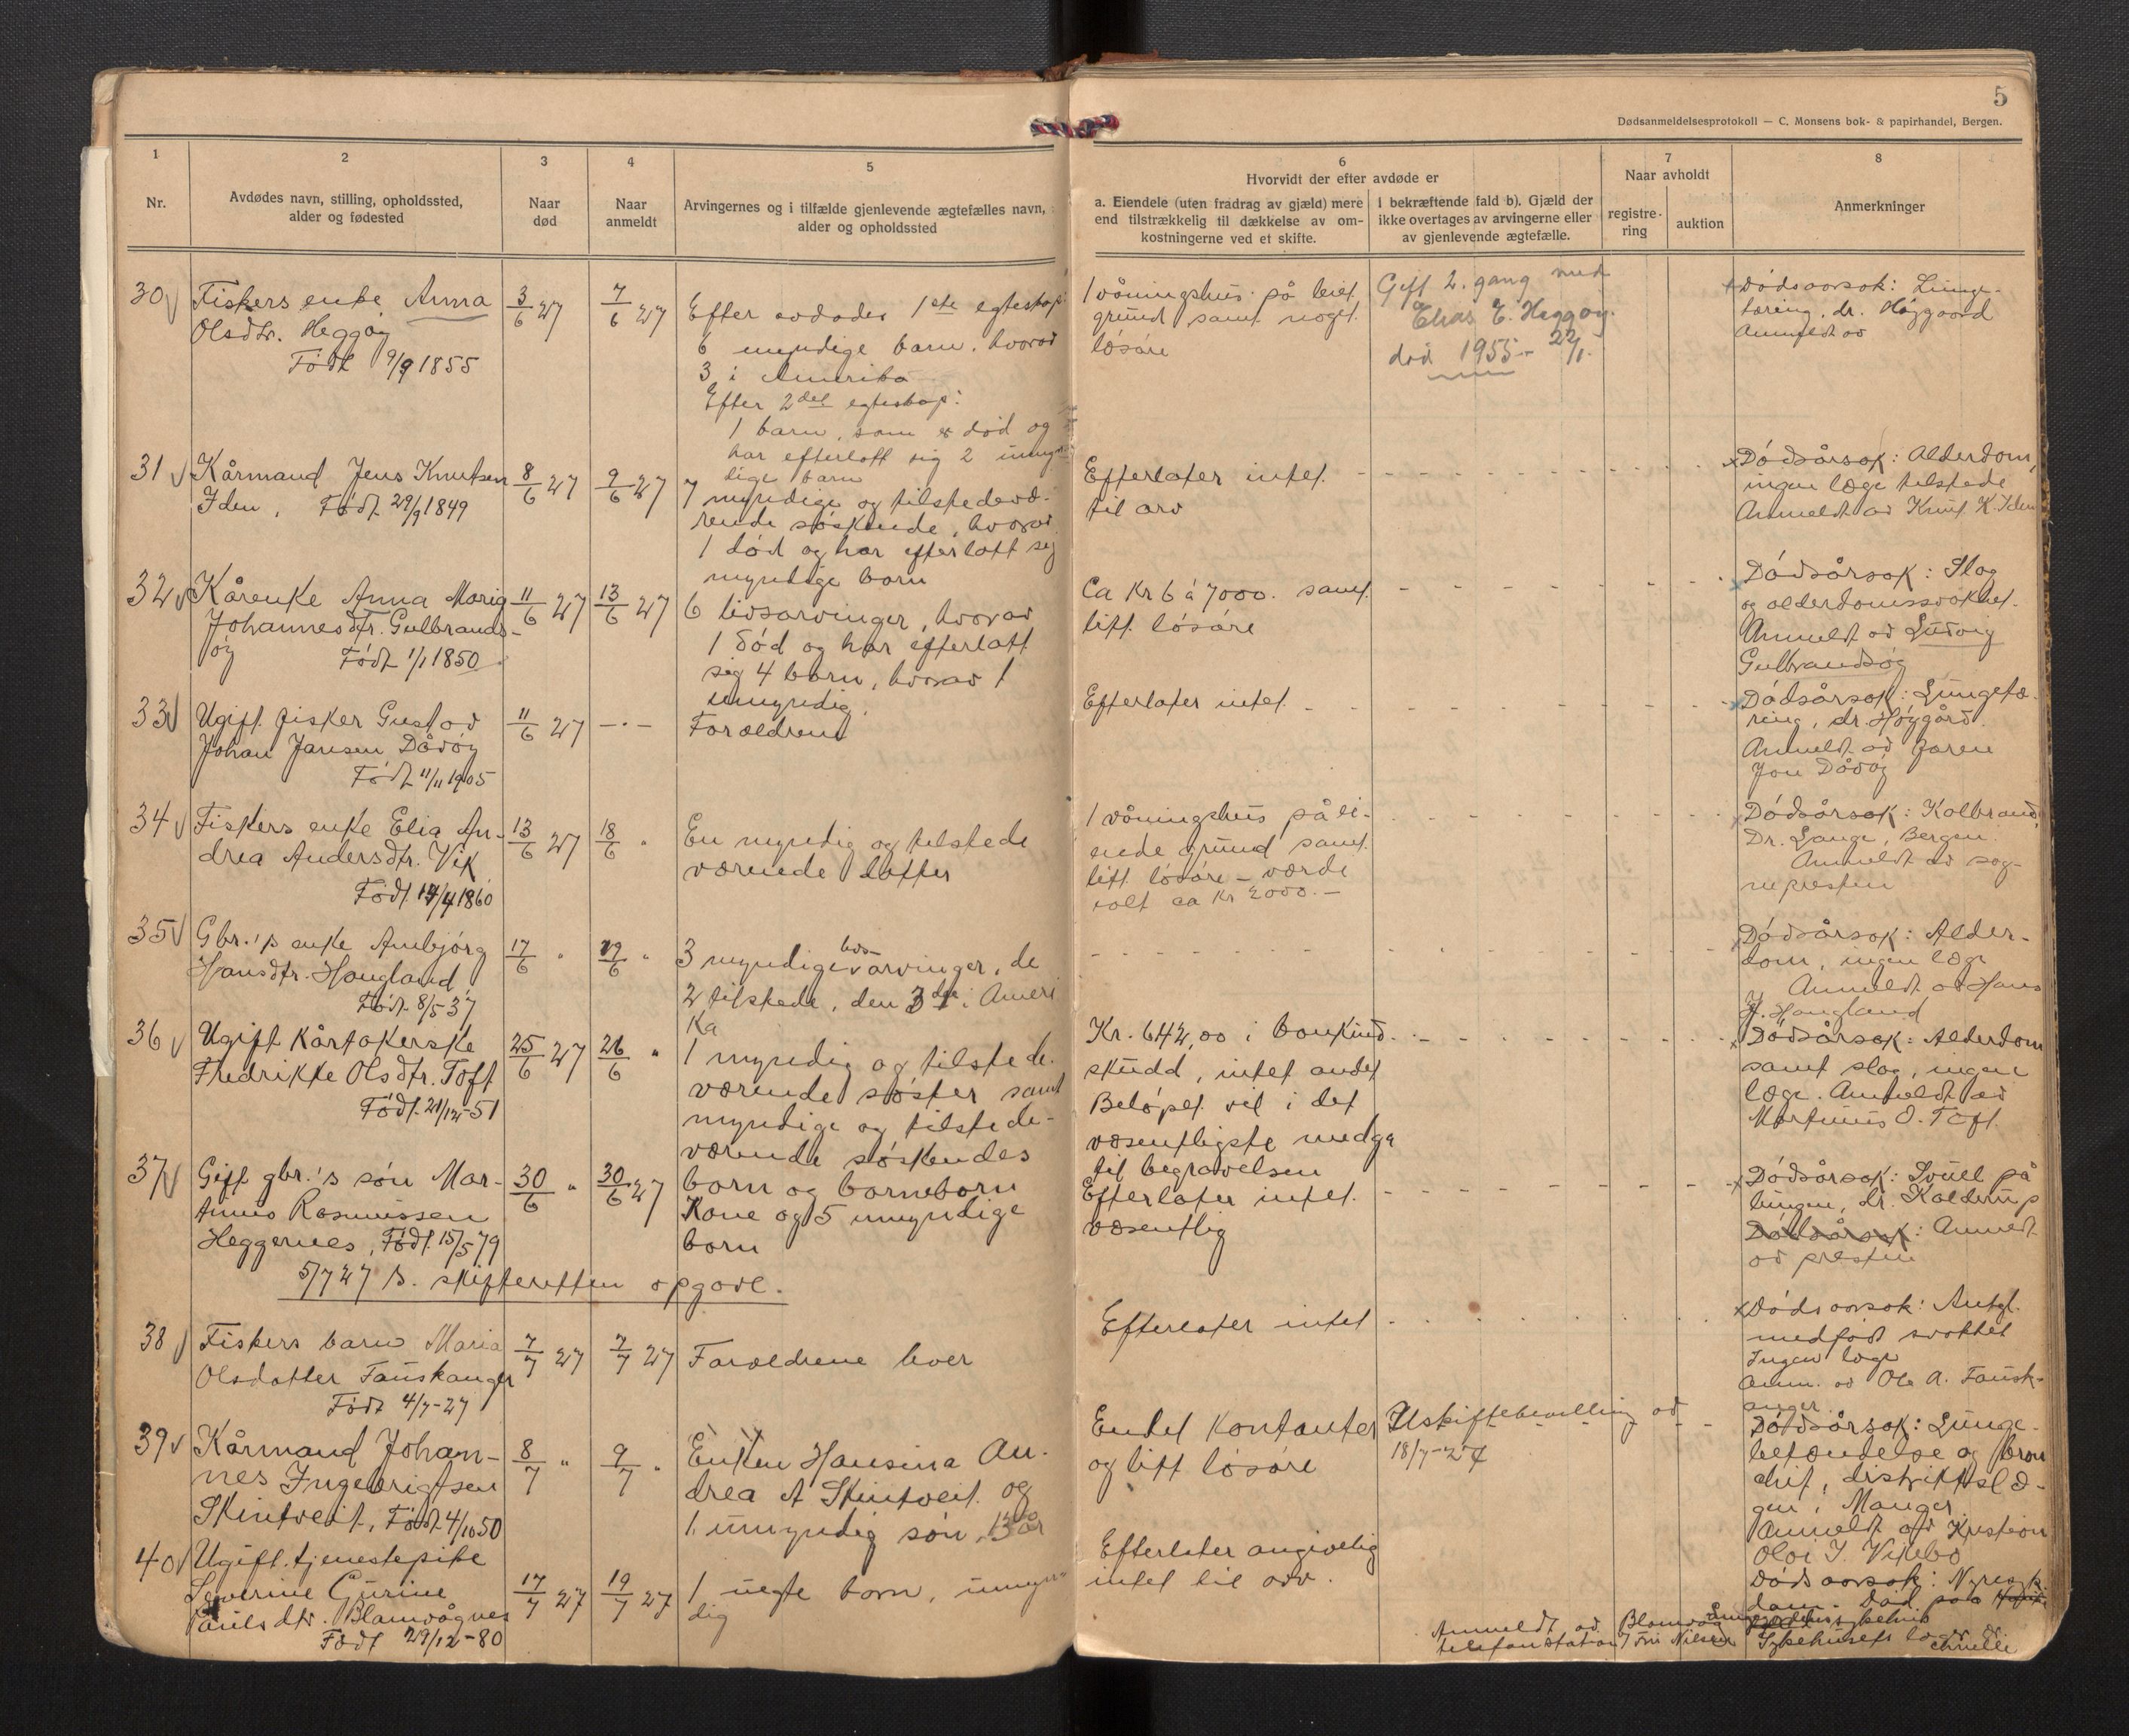 5
Dødsanmeldelsesprotokoll — C. Monsens bok- & papirhandel, Bergen.
1
2
3
4
5
6
7
8
Nr.
Avdødes navn, stilling, opholdssted,
alder og fødested
Naar
død
Naar
anmeldt
Arvingernes og i tilfælde gjenlevende ægtefælles navn,
alder og opholdssted
Hvorvidt der efter avdøde er
a. Eiendele (uten fradrag av gjæld) mere
end tilstrækkelig til dækkelse av om-
kostningerne ved et skifte.
I bekræftende fald b). Gjæld der
ikke overtages av arvingerne eller
av gjenlevende ægtefælle.
Naar avholdt
registre-
ring
auktion
Anmerkninger
30
Fiskers enke Anna
Olsdtr. Heggøy
Født 9/9 1855
3/6 27
7/6 27
Efter avdødes 1ste egteskap:
6 myndige barn, hvorav
3 i Amerika
Efter 2det egteskap:
1 barn, som er død og
har efterlatt sig 2 umyn
dige barn
1 våningshus på leiet
grund samt noget
løsøre
Gift 2. gang med
Elias E. Heggøy.
død 1955 - 22/1.
Dødsaarsak: Lunge-
tæring, dr. Høygaard
Anmeldt av
31
Kårmand Jens Knutsen
Iden, Født 29/9 1849
8/6 27
9/6 27
7 myndige og tilstedevæ-
rende søskende, hvorav
1 død og har efterlatt sig
myndige barn
Efterlater intet
til arv
Dødsårsak: Alderdom,
ingen læge tilstede
Anmeldt av Knut K. Iden
32
Kårenke Anna Marig
Johannesdtr. Gulbrands-
øy Født 1/1 1850
11/6 27
13/6 27
6 livsarvinger, hvorav
1 død og har efterlatt
sig 4 barn, hvorav 1
umyndig.
Ca Kr 6 à 7000. samt
litt løsøre
Dødsårsak: Slag
og alderdomssvakhet.
Anmeldt av Ludvig
Gulbrandsøy
33
Ugift fisker Gustav
Johan Jansen Dåvøy
Født 11/11 1905
11/6 27
— · —
Forældrene
Efterlater intet
Dødsårsak: Lungetæ-
ring, dr. Høygård.
Anmeldt av faren
Jon Dåvøy
34
Fiskers enke Elia An-
drea Andersdtr. Vik
Født 14/4 1860
13/6 27
18/6 "
En myndig og tilstede
værende datter
1 våningshus på lei-
ende grund samt
litt løsøre - værdi
ialt ca Kr 2000.—
Dødsårsak: Kolbrand
Dr. Lange, Bergen
Anmeldt av sog-
nepresten
35
Gbr.'s enke Anbjørg
Hansdtr. Haugland
Født 8/5 37
17/6 "
19/6 "
3 myndige livs-arvinger, de
2 tilstede, den 3dje i Ameri
ka
Dødsårsak: Alder-
dom, ingen læge
Anmeldt av Hans
H. Haugland
36
Ugift Kårtakerske
Fredrikke Olsdtr. Toft
Født 21/12-51
25/6 27
26/6 "
1 myndig og tilstede-
værende søster samt
myndige og tilstede-
værende søskendes
barn og barnebarn
Kr. 642,00 i bankind-
skudd, intet andet
Beløpet vil i det
væsentligste medgå
til begravelsen
Dødsårsak: Alderdom
samt slag, ingen
læge. Anmeldt av
Martinus O. Toft
37
Gift gbr.'s søn Mar-
tinus Rasmussen
Heggernes, Født 15/5 79
30/6 "
30/6 27
Kone og 5 umyndige
barn
Efterlater intet
væsentlig
Dødsårsak: Svull på
lungen, dr. Kalderup
Dødsårsak: Anmeldt
av presten
5/7 27 s. skifteretten opgave.
38
Fiskers barn Maria
Olsdatter Fauskanger
Født 4/7-27
7/7 27
7/7 27
Forældrene lever
Efterlater intet
Dødsaarsak: Antgl.
medfødt svakhet
Ingen læge
Anm. av Ole A. Fausk-
anger
39
Kårmand Johan-
nes Ingebrigtsen
Skintveit, Født 4/10 50
8/7 "
9/7 "
Enken Hansina An-
drea A Skintveit og
1 umyndig søn, 13 år
Endel kontanter
og litt løsøre
Uskiftebevilling av
18/7-27
Dødsårsak: Lunge-
betændelse og bron
chit, distriktslæ-
gen i Manger
Anmeldt av Kristian
Olai J. Vikebø
40
Ugift tjenestepike
Severine Gurine
Paulsdtr. Blomvågnes
Født 29/12-80
17/7 27
19/7 27
1 uegte barn, umyn
dig
Efterlater angivelig
intet til arv.
Anmeldt av Blomvåg
telefonstation v/ Frk Nilsen
Dødsaarsak: Nyresyk
dom. Død paa
Sykehusets læge, dr.